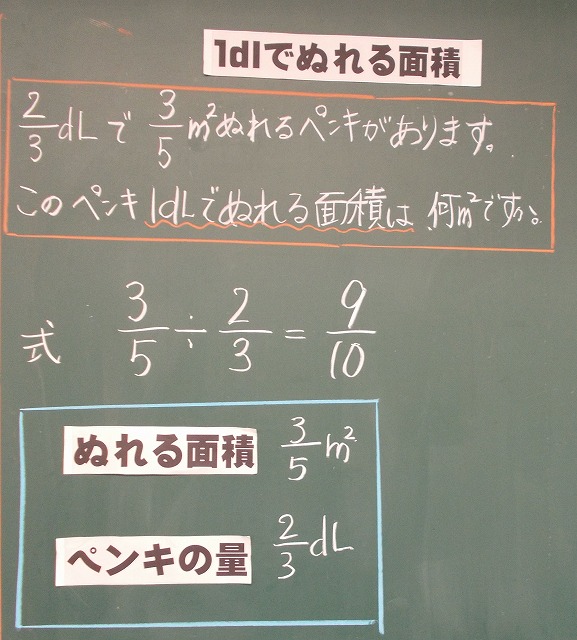 1dlでぬれる面積
2/3 dLで 3/5 m²ぬれるペンキがあります。
このペンキ1dLでぬれる面積は 何m²ですか。
式 3/5 ÷ 2/3 = 9/10
ぬれる面積 3/5 m²
ペンキの量 2/3 dL